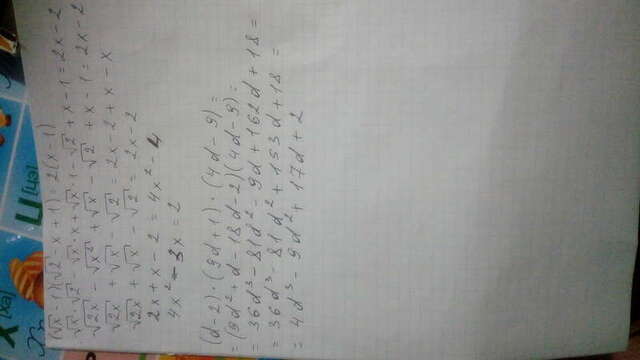 (√x - 1)(√2 - x + 1) = 2(x-1)
√x·√2 - √x·x + √x·1 - √2 + x - 1 = 2x - 2
√2x - √x² + √x - √2 + x - 1 = 2x - 2
√2x + √x - √2 = 2x - 2 + x - x
√2x + √x - √2 = 2x - 2
2x + x - 2 = 4x² - 4
4x² - 3x = 2
(d-2)·(9d+1)·(4d-9) =
= (9d² + d - 18d - 2)(4d - 9) =
= 36d³ - 81d² - 9d + 162d + 18 =
= 36d³ - 81d² + 153d + 18 =
= 4d³ - 9d² + 17d + 2
X [xa]